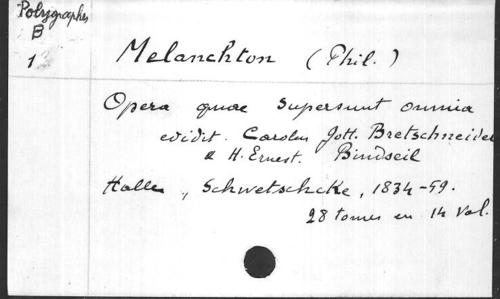 Polygraphes
B
1
Melanchton (Phil.)
Opera quae supersunt omnia
edidit. Carolus Gott. Bretschneider
& H. Ernest. Bindseil
Halle, Schwetschcke, 1834-59.
28 tomes en 14 vol.